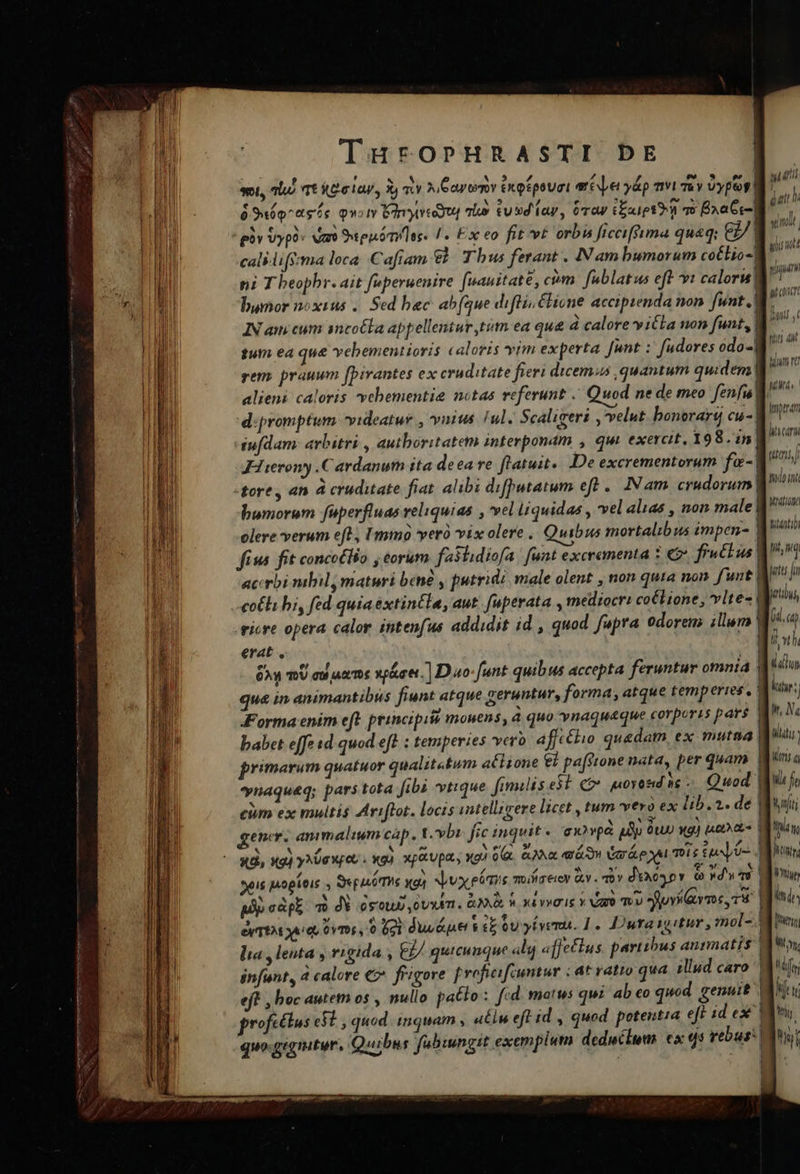 THEOPHRASTI DE
ὁ Θεόφραστός φησιν ἐπιγίνεσθαι τὴν εὐωδίαν, ὅταν ἐξαιρεθῇ τὸ βλαβε-
ρὸν ὑγρὸν ὑπὸ θερμότητος. I. Ex eo fit vt orbis siccissima quæq; &
calidissima loca Casiam & Thus ferant. Nam humorum coctio-
ni Theophr. ait superuenire suauitatē, cùm sublatus est vi caloris
humor noxius. Sed hæc absque distinctione accipienda non sunt.
Nam cum incocta appellentur, tùm ea quæ à calore victa non sunt,
tum ea quæ vehementioris caloris vim experta sunt: sudores odo-
rem prauum spirantes ex cruditate fieri dicemus, quantum quidem
alieni caloris vehementiæ notas referunt. Quod ne de meo sensu
depromptum videatur, vnius Iul. Scaligeri, velut honorarij cu-
iusdam arbitri, authoritatem interponam, qui exercit. 198. in
Hierony. Cardanum ita de ea re statuit. De excrementorum fœ-
tore, an à cruditate fiat alibi disputatum est. Nam crudorum
humorum superfluas reliquias, vel liquidas, vel alias, non male
olere verum est, Immò verò vix olere. Quibus mortalibus impen-
sius fit concoctio, eorum fastidiosa sunt excrementa: & fructus
acerbi nihil, maturi benè, putridi male olent, non quia non sunt
cocti hi, sed quia extincta, aut superata, mediocri coctione, vlte-
riore opera calor intensus addidit id, quod supra odorem illum
erat.
ὕλη τοῦ σώματος κράσει.] Duo sunt quibus accepta feruntur omnia
quæ in animantibus fiunt atque geruntur, forma, atque temperies.
Forma enim est principiū mouens, à quo vnaquæque corporis pars
habet esse id quod est: temperies verò affectio quædam ex mutua
primarum quatuor qualitatum actione & passione nata, per quam
vnaquæq; pars tota sibi vtique similis est & μονοειδής. Quod
cùm ex multis Aristot. locis intelligere licet, tum verò ex lib. 2. de
gener. animalium cap. 1. vbi sic inquit. σκληρὰ μὲν οὖν καὶ μαλα-
κὰ, καὶ γλίσχρα, καὶ κραῦρα, καὶ ὅσα ἄλλα πάθη ὑπάρχει τοῖς ἐμψύ-
χοις μορίοις, θερμότης καὶ ψυχρότης ποιήσειεν ἄν. τὸν δὲ λόγον ᾧ ἤδη τὸ
μὲν σὰρξ τὸ δὲ ὀστοῦν, οὐκέτι. ἀλλ' ἡ κίνησις ἡ ὑπὸ τοῦ γεννήσαντος, τοῦ
ἐντελεχείᾳ ὄντος, ὅ ἐστι δυνάμει ἐξ οὗ γίνεται. I. Dura igitur, mol-
lia, lenta, rigida, & quicunque alij affectus partibus animatis
insunt, à calore & frigore proficiscuntur: at ratio qua illud caro
est, hoc autem os, nullo pacto: sed motus qui ab eo quod genuit
profectus est, quod inquam, actu est id, quod potentia est id ex
quo gignitur. Quibus subiungit exemplum deductum ex ijs rebus